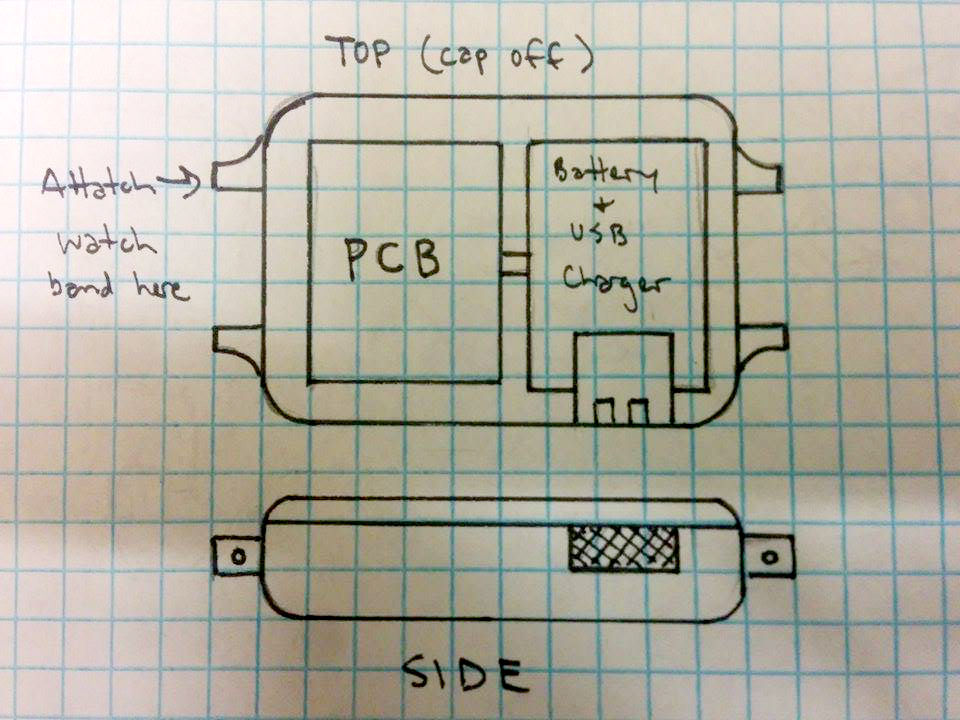 TOP (cap off)
Attatch →
watch
band here
PCB
Battery
+
USB
Charger
SIDE